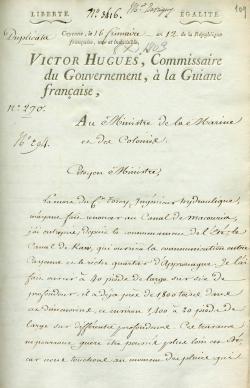 LIBERTÉ. Nº. 3616. ÉGALITÉ. 109
Duplicata
Cayenne, le 16 frimaire an 12 de la République
française, une et indivisible.
8 X 1803
VICTOR HUGUES, Commissaire
du Gouvernement, à la Guiane
française,
Nº 290.
Au Ministre de la Marine
et des Colonies
Nº 294.
Citoyen Ministre,
La mort du Cen , Ingénieur hydraulique,
fait renoncer au Canal de macouria,
j'ai entrepris, depuis le commencement de l'
Canal de Kaw, qui ouvrira la communication entre
Cayenne et le riche quartier d'Approuague. Je l'ai
fait ouvrir à 40 pieds de large sur six de
profondeur. il a déjà près de 1800 toises dans
sa dimension, et environ 1,400 à 20 pieds de
large sur différentes profondeurs. Ces travaux
ne pourront guère être poussés plus loin cet
car nous touchons au moment des pluies qui